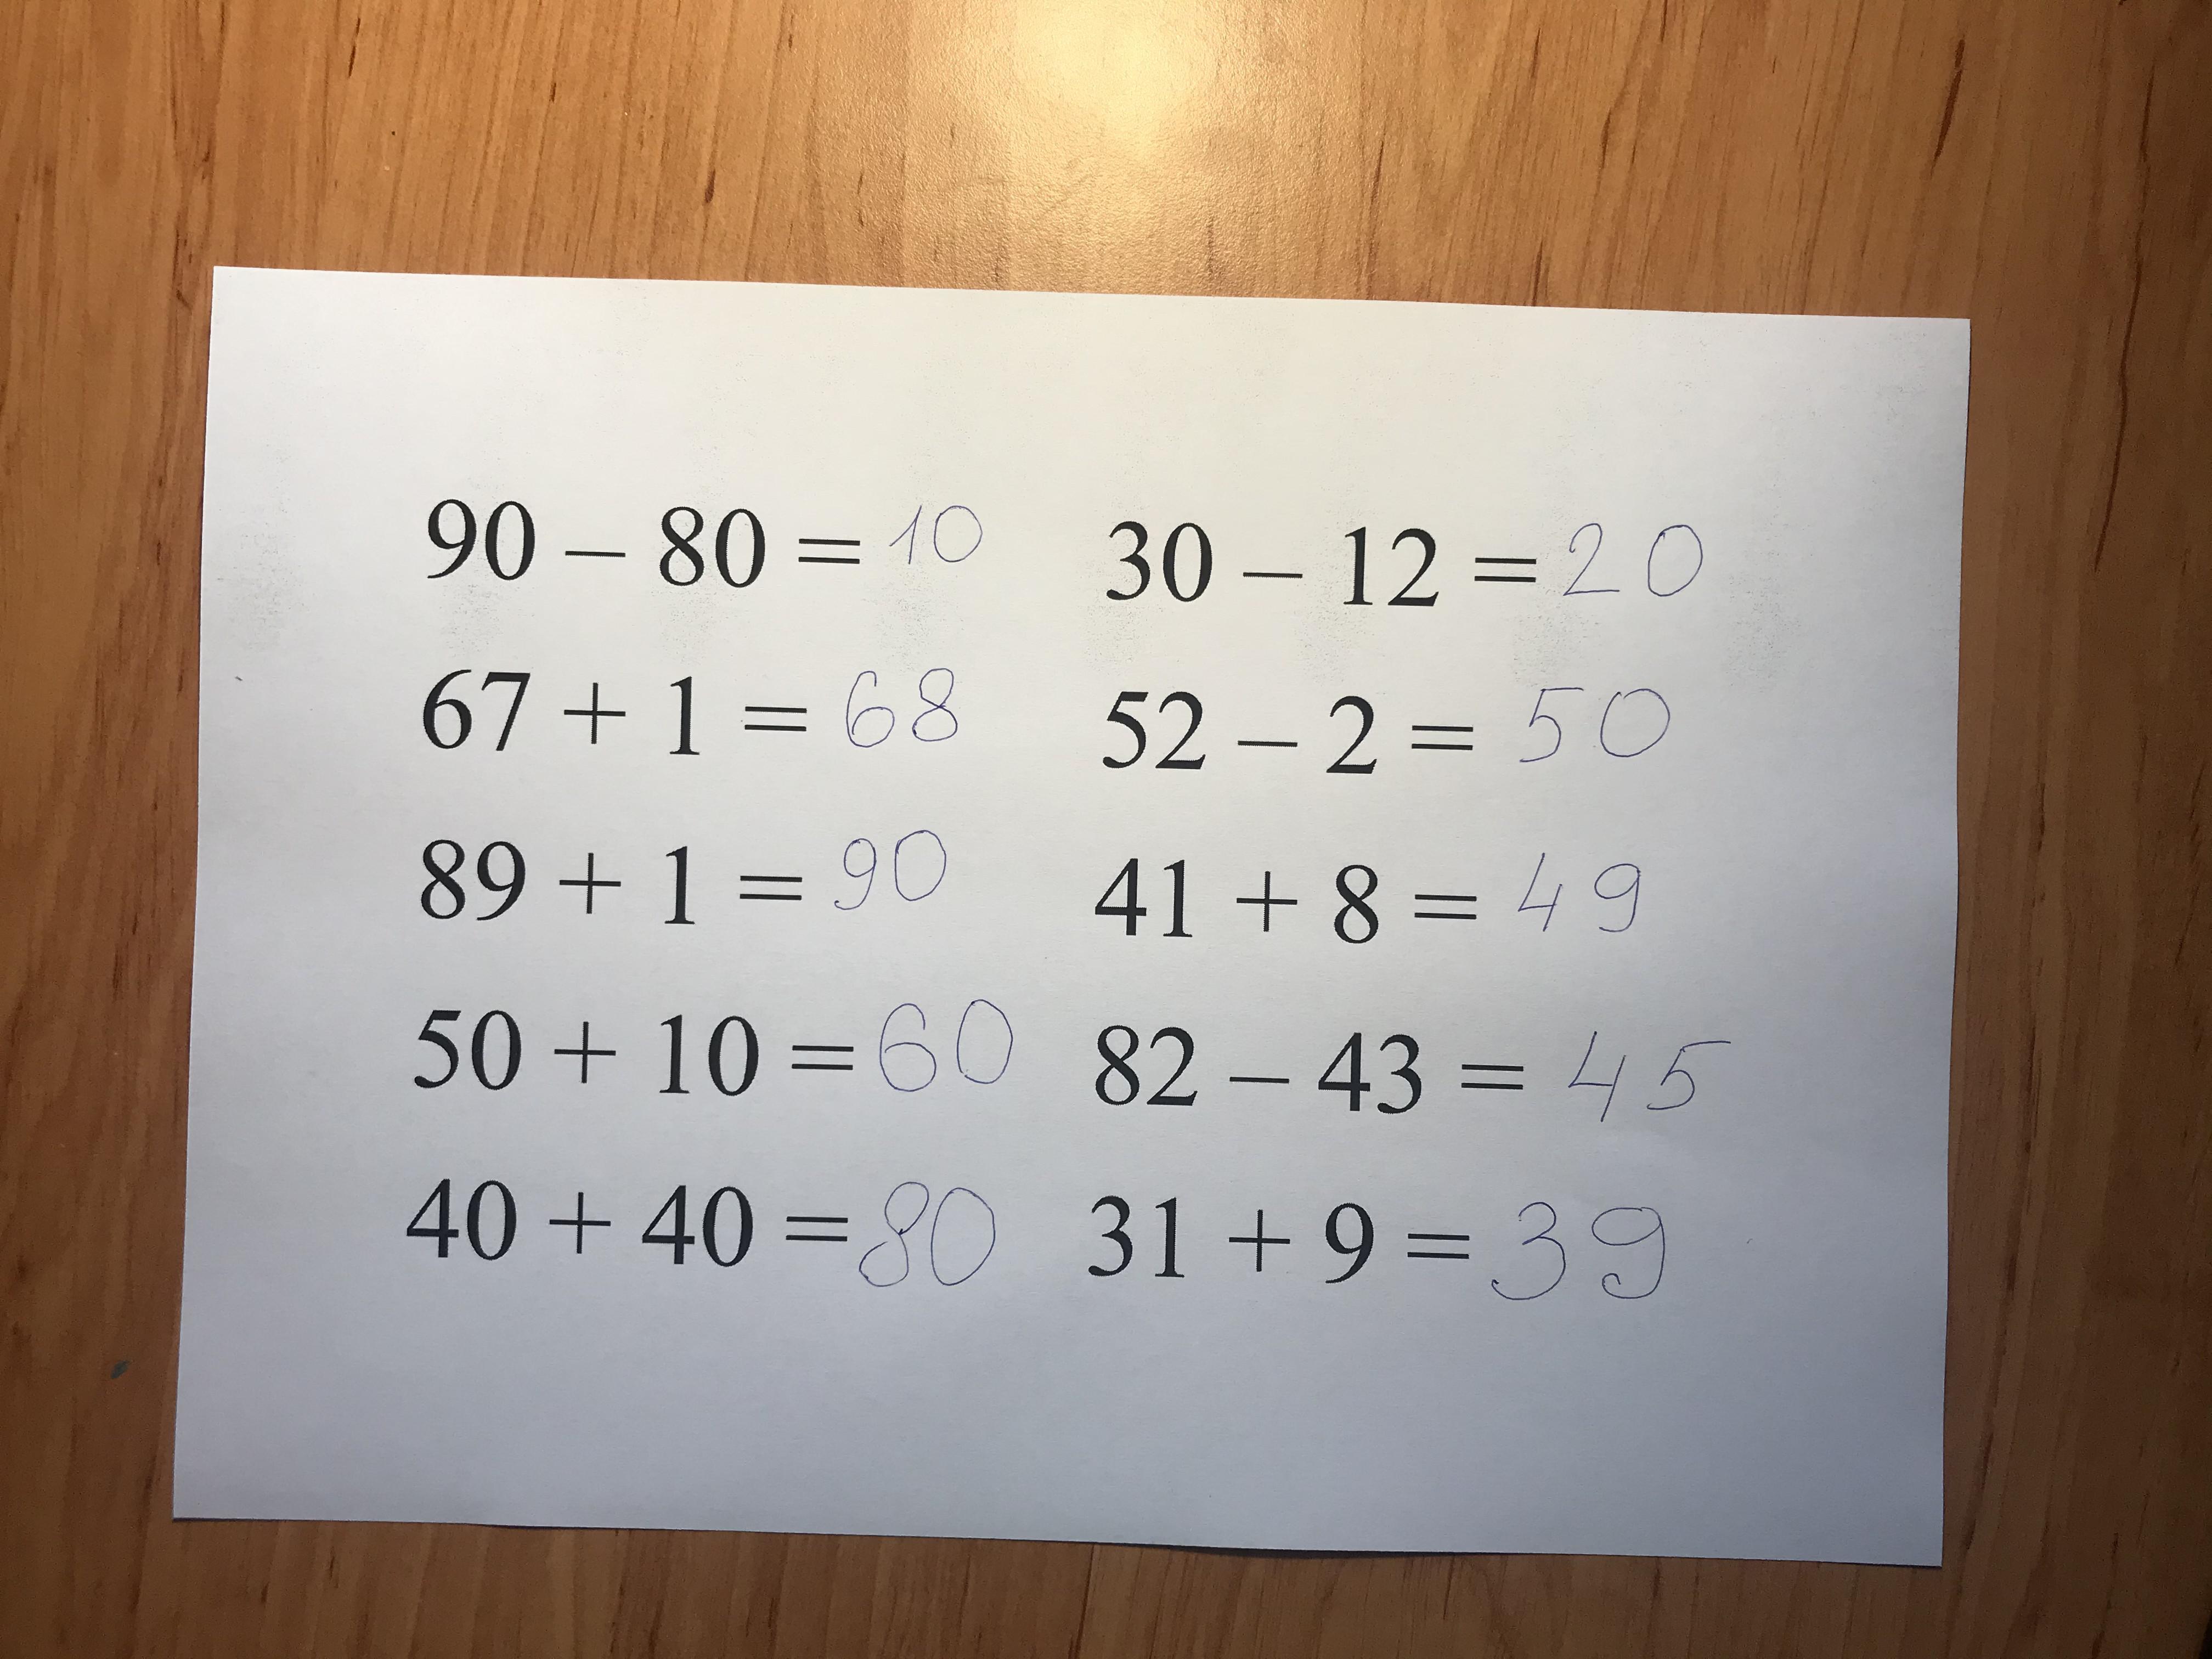 90 – 80 = 10
67 + 1 = 68
89 + 1 = 90
50 + 10 = 60
40 + 40 = 80
30 – 12 = 20
52 – 2 = 50
41 + 8 = 49
82 – 43 = 45
31 + 9 = 39